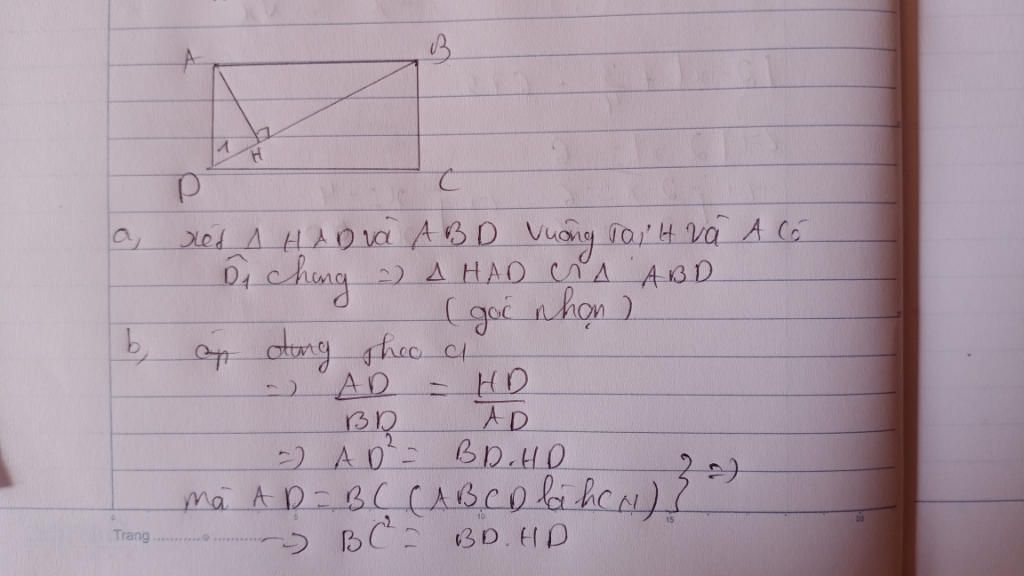 A
B
1
H
D
C
a, xét Δ HAD và ABD vuông tại H và A có
D̂1 chung => Δ HAD ∽ Δ ABD
(góc nhọn)
b, áp dụng theo a
=> AD/BD = HD/AD
=> AD² = BD.HD
mà AD = BC (ABCD là hcN) } =>
=> BC² = BD.HD
0 5 10 15 20
Trang